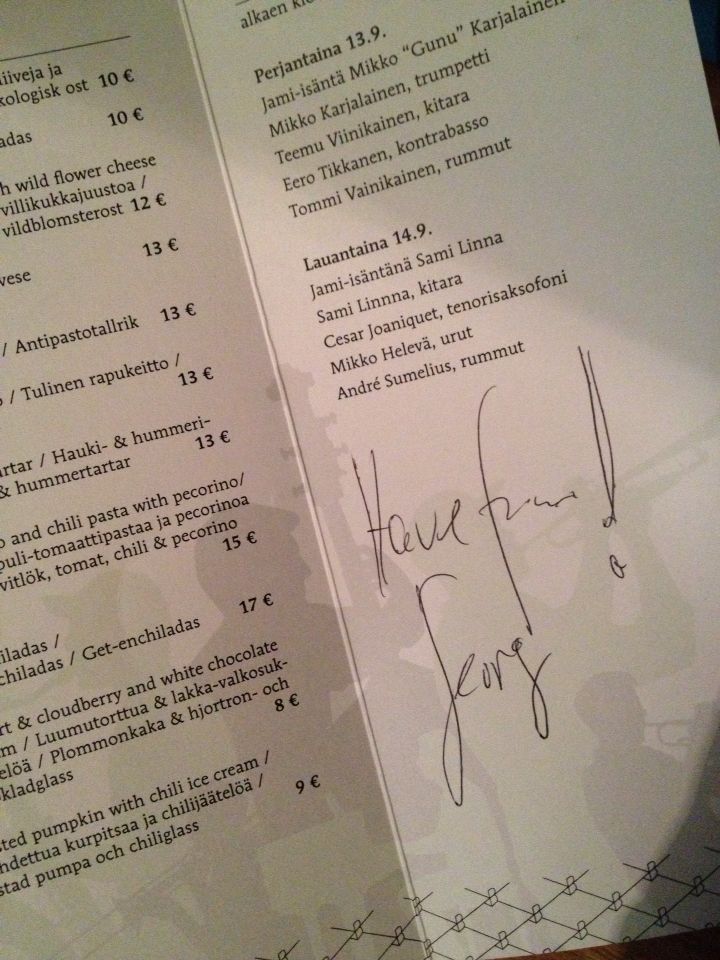 iiveja ja
kologisk ost 10 €
10 €
adas
h wild flower cheese
villikukkajuustoa /
vildblomsterost 12 €
13 €
vese
/ Antipastotallrik 13 €
/ Tulinen rapukeitto /
13 €
artar / Hauki- & hummeri-
& hummertartar 13 €
o and chili pasta with pecorino/
puli-tomaattipastaa ja pecorinoa
vitlök, tomat, chili & pecorino
15 €
17 €
iladas /
chiladas / Get-enchiladas
rt & cloudberry and white chocolate
m / Luumutorttua & lakka-valkosuk-
elöä / Plommonkaka & hjortron- och
kladglass 8 €
sted pumpkin with chili ice cream /
hdettua kurpitsaa ja chilijäätelöä /
stad pumpa och chiliglass 9 €
alkaen klo
Perjantaina 13.9.
Jami-isäntä Mikko “Gunu” Karjalainen
Mikko Karjalainen, trumpetti
Teemu Viinikainen, kitara
Eero Tikkanen, kontrabasso
Tommi Vainikainen, rummut
Lauantaina 14.9.
Jami-isäntänä Sami Linna
Sami Linnna, kitara
Cesar Joaniquet, tenorisaksofoni
Mikko Helevä, urut
André Sumelius, rummut
Have fun!
Georg